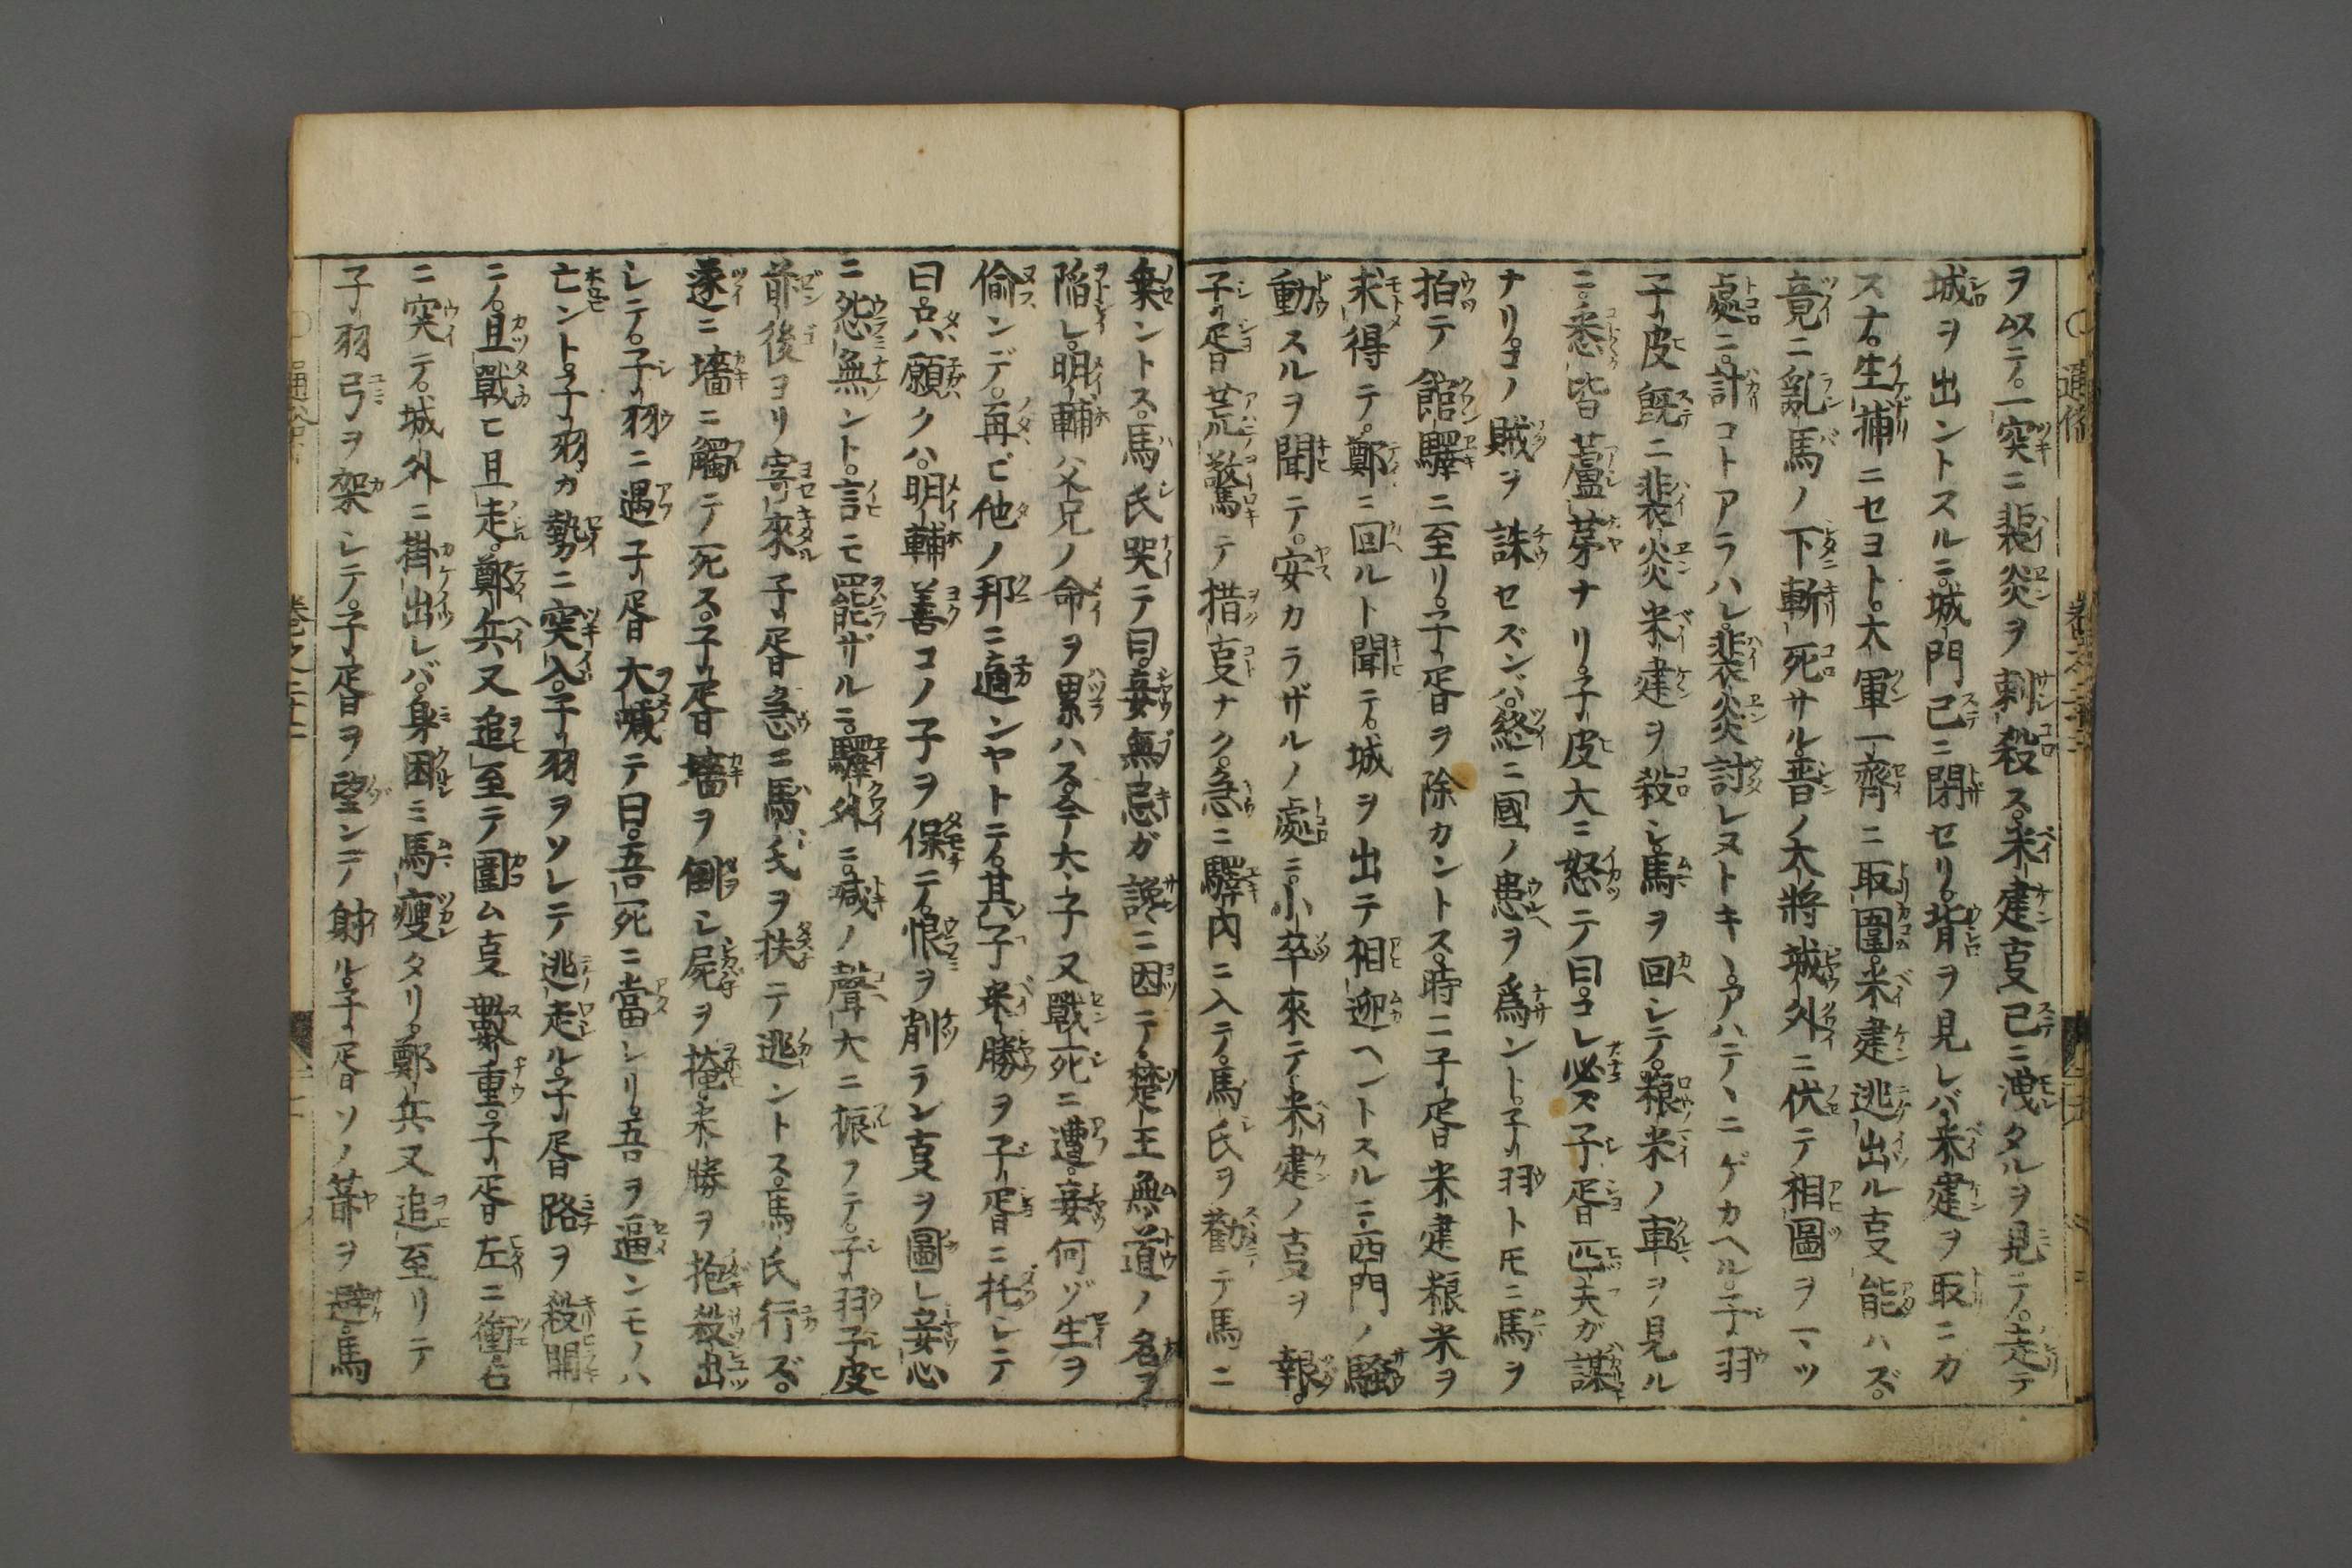 ヲ以テ。一突ニ裴炎ヲ刺殺ス。米建叓已ニ洩タルヲ見テ。走テ
城ヲ出ントスルニ。城門已ニ閉セリ。背ヲ見レバ。米建ヲ取ニガ
スナ。生捕ニセヨト。大軍一齊ニ取圍。米建逃出ル叓能ハズ。
竟ニ亂馬ノ下斬死サル。晉ノ大將城外ニ伏テ相圖ヲ一ツ
處ニ。計コトアラハレ。裴炎討レヌトキヽ。アハテヽニゲカヘル。子羽
子皮既ニ裴炎米建ヲ殺シ。馬ヲ回シテ。粮米ノ車ヲ見ル
ニ。悉皆蘆茅ナリ。子皮大ニ怒テ曰。コレ必ズ子胥匹夫ガ謀
ナリ。コノ賊ヲ誅セズンバ。終ニ國ノ患ヲ爲ント。子羽トモニ馬ヲ
拍テ館驛ニ至リ。子胥ヲ除カントス。時ニ子胥米建粮米ヲ
求得テ。鄭ニ回ルト聞テ。城ヲ出テ相迎ヘントスルニ。西門ノ騷
動スルヲ聞テ。安カラザルノ處ニ。小卒來テ米建ノ叓ヲ報。
子胥荒驚テ措叓ナク。急ニ驛内ニ入テ。馬氏ヲ勸テ馬ニ
棄ントス。馬氏哭テ曰。妾無忌ガ讒ニ因テ。楚王無道ノ名ヲ
陷レ。明輔ハ父兄ノ命ヲ累ハス。今太子又戰死ニ遭。妾何ゾ生ヲ
偷ンデ。再ビ他ノ邦ニ適ンヤトテ。其子米勝ヲ子胥ニ托シテ
曰。只願クハ。明輔善コノ子ヲ保テ。恨ヲ削ラン叓ヲ圖レ。妾心
ニ怨無ント。言モ罷ザルニ。驛外ニ。喊ノ聲大ニ振フテ。子羽子皮
前後ヨリ寄來。子胥急ニ馬氏ヲ扶テ逃ントス。馬氏行ズ。
遂ニ墻ニ觸テ死ス。子胥墻ヲ倒シ屍ヲ掩。米勝ヲ抱殺出
シテ。子羽ニ遇。子胥大喊テ曰。吾死ニ當レリ。吾ヲ逼ンモノハ
亡ント。子羽カ勢ニ突入。子羽ヲソレテ逃走ル。子胥路ヲ殺開
ニノ。且戰ヒ且走。鄭兵又追至テ圍ム叓數重。子胥左ニ衝右
ニ突テ。城外ニ掛出レバ。身困ミ馬瘦タリ。鄭兵又追至リテ
子羽弓ヲ架シテ。子胥ヲ望ンデ射ル。子胥ソノ箭ヲ避。馬